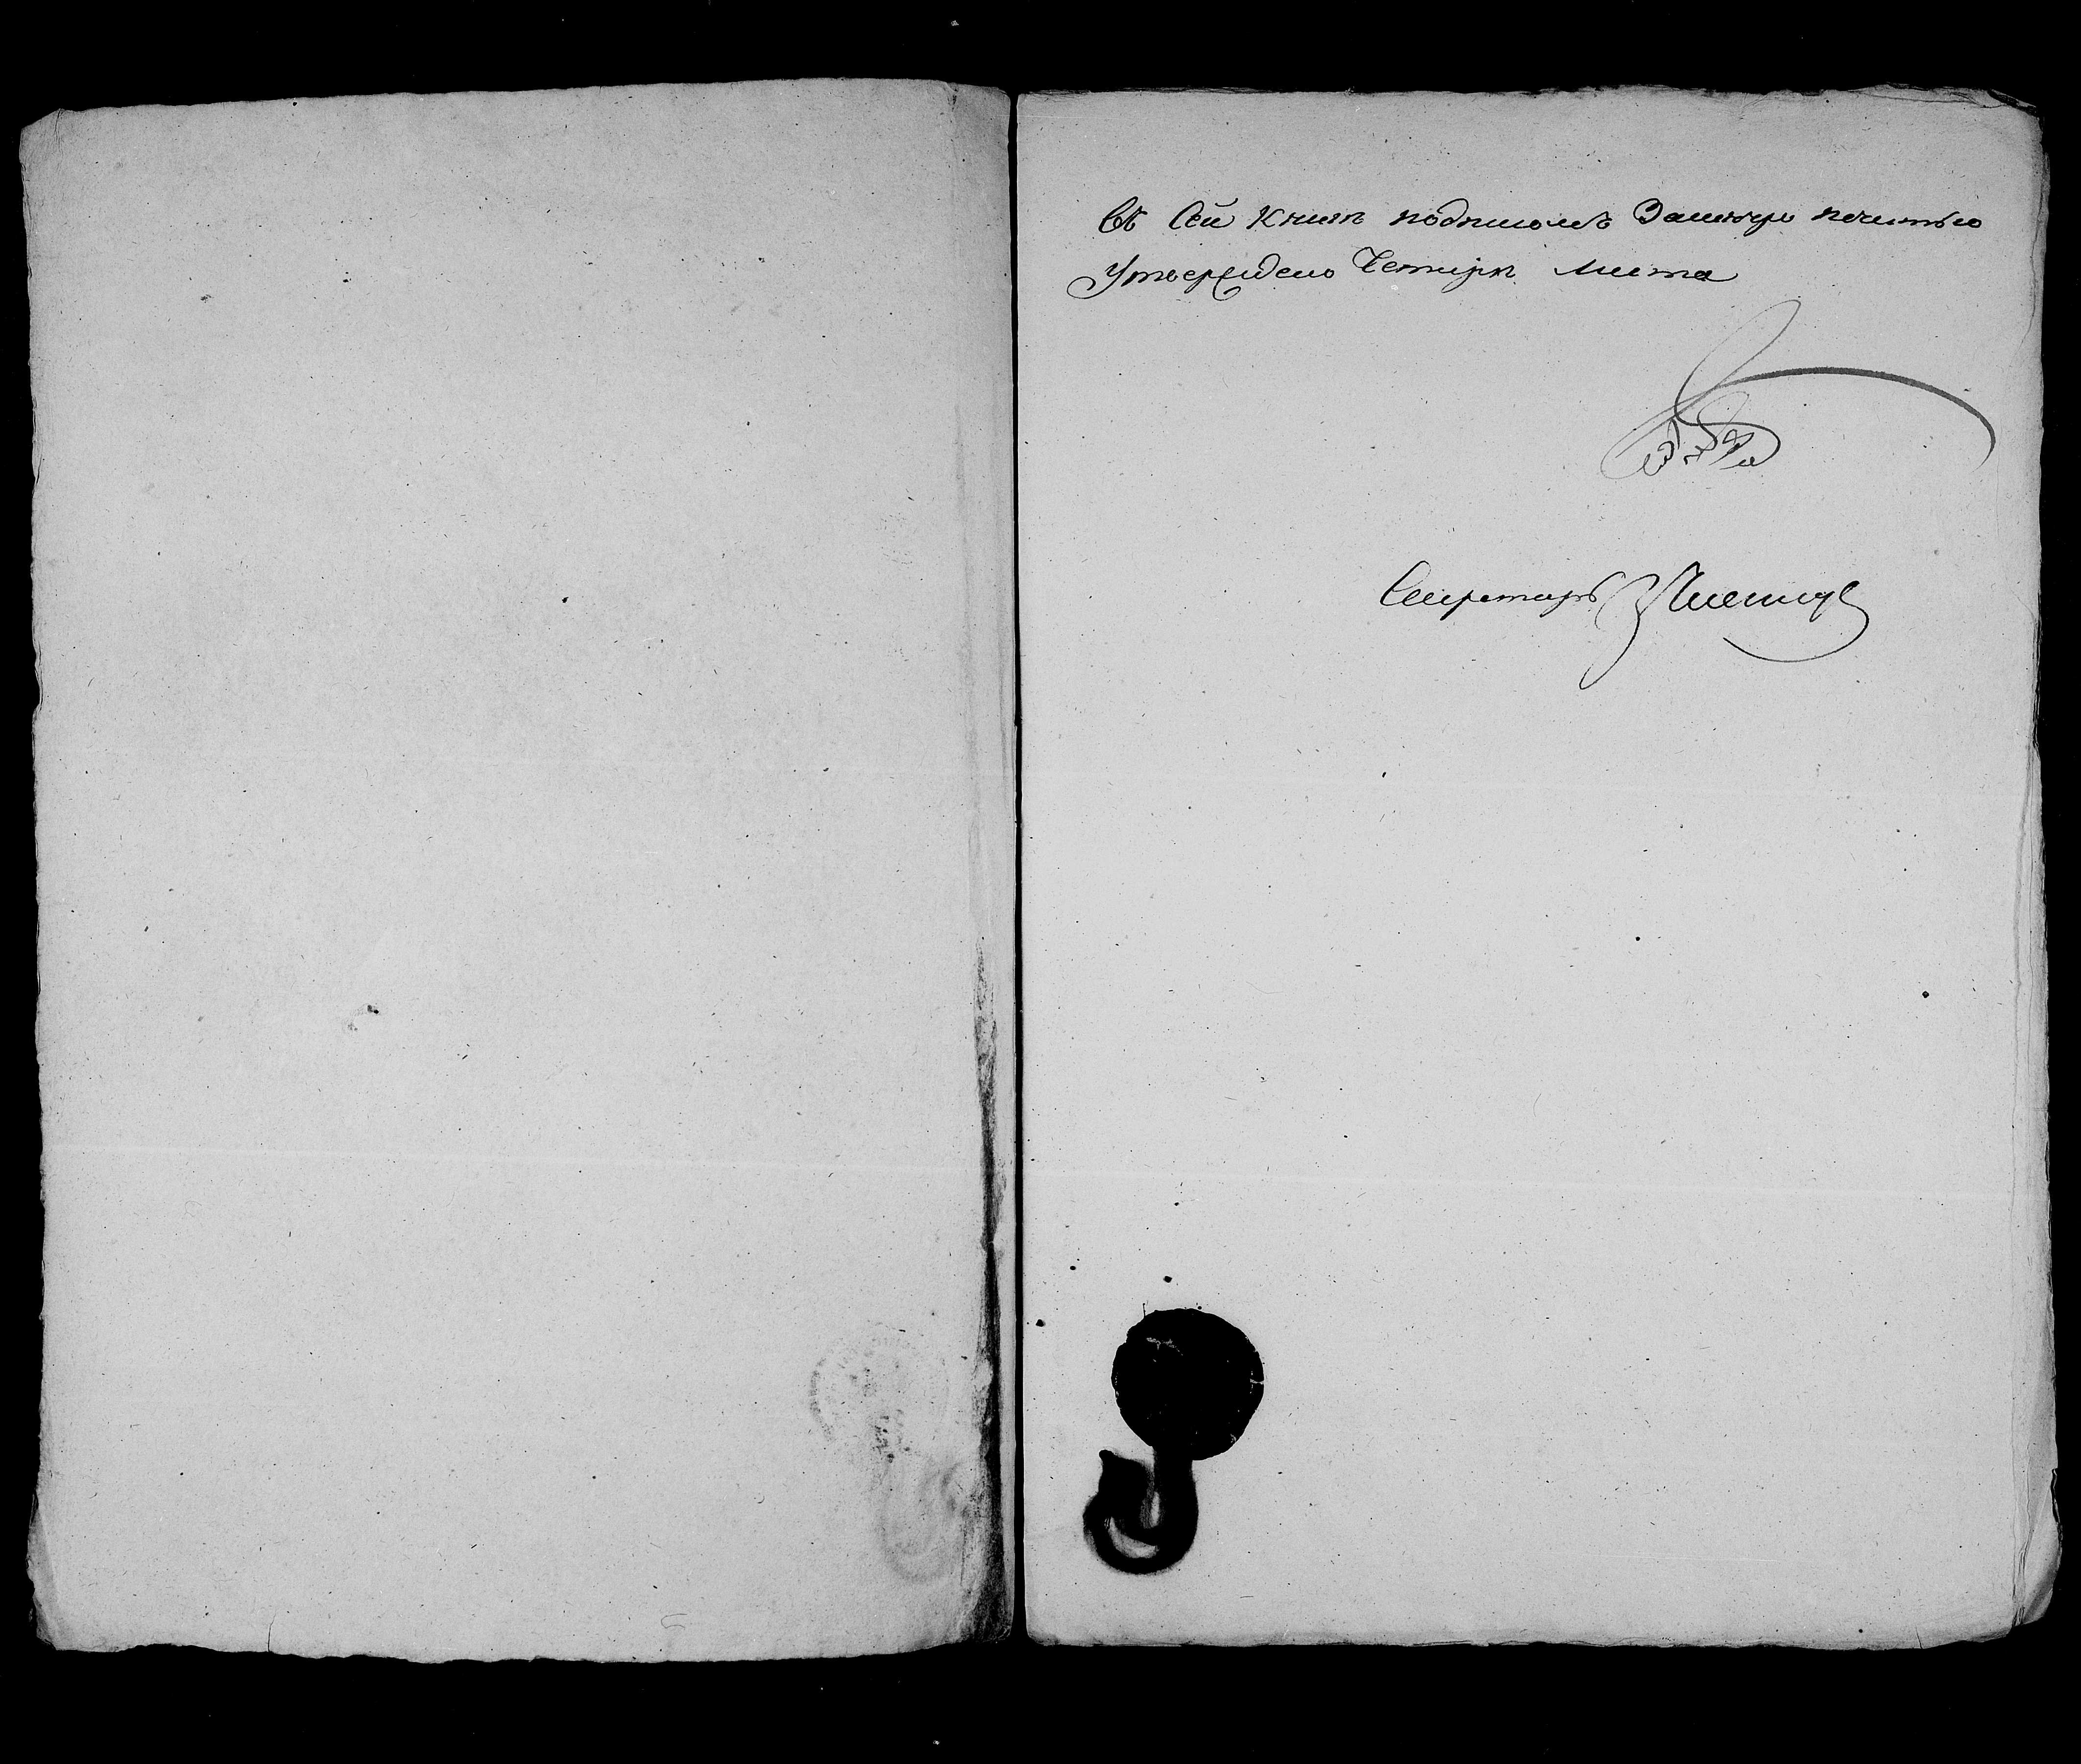 Въ Сей Книгѣ подписомъ Зашнурѣ печатью
Утверждено Четыре листа
Секретарь